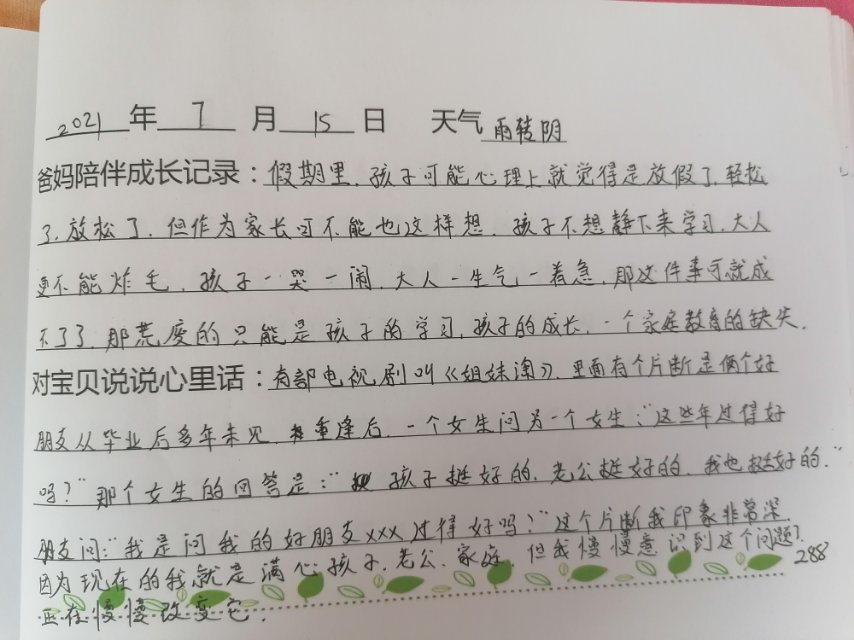 2021 年 7 月 15 日 天气 雨转阴
爸妈陪伴成长记录：假期里，孩子可能心理上就觉得是放假了，轻松
了，放松了，但作为家长可不能也这样想，孩子不想静下来学习，大人
更不能炸毛，孩子一哭一闹，大人一生气一着急，那这件事可就成
不了了，那荒废的只能是孩子的学习，孩子的成长，一个家庭教育的缺失。
对宝贝说说心里话：有部电视剧叫《姐妹淘》，里面有个片断是俩个好
朋友从毕业后多年未见，重逢后，一个女生问另一个女生："这些年过得好
吗？"那个女生的回答是："孩子挺好的，老公挺好的，我也挺好的。"
朋友问："我是问我的好朋友xxx过得好吗？"这个片断我印象非常深，
因为现在的我就是满心孩子，老公，家庭，但我慢慢意识到这个问题？
正在慢慢改变它。
288